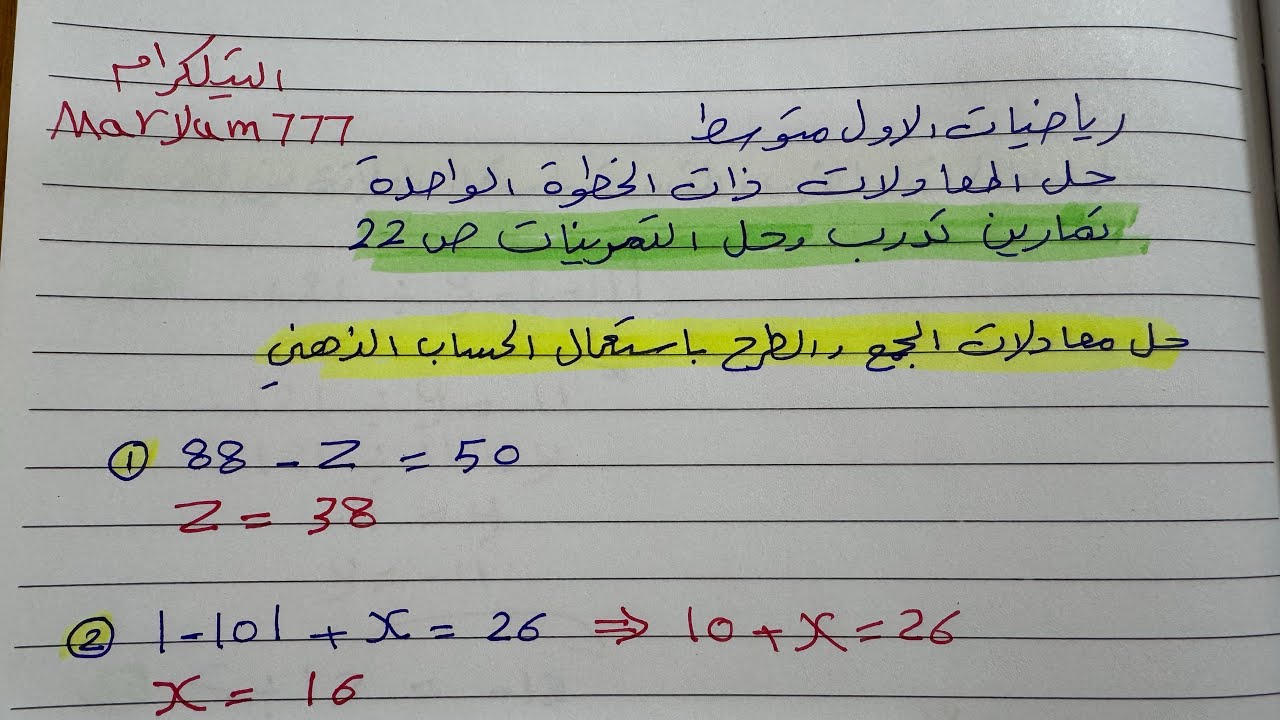 التيلكرام
Maryam777
رياضيات الاول متوسط
حل المعادلات ذات الخطوة الواحدة
تمارين تدرب وحل التمرينات ص 22
حل معادلات الجمع والطرح باستعمال الحساب الذهني
① 88 - Z = 50
Z = 38
② |-10| + x = 26 ⇒ 10 + x = 26
x = 16